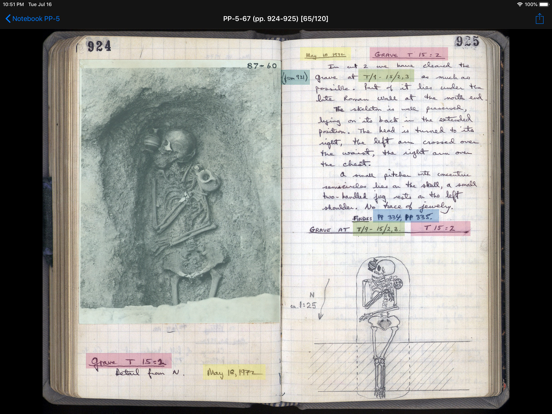 10:51 PM Tue Jul 16
100%
Notebook PP-5
PP-5-67 (pp. 924-925) [65/120]
924
87-60
Grave T 15:2
Detail from N.
May 18, 1972
925
May 18, 1972
GRAVE T 15:2
(from 921)
In cut 2 we have cleaned the
grave at T/9-15/2,3 as much as
possible. Part of it lies under the
late Roman wall at the north end.
The skeleton is well preserved,
lying on its back in the extended
position. The head is turned to its
right, the left arm crossed over
the waist, the right arm over
the chest.
A small pitcher with
semicircles lies on the skull, a small
two-handled jug rests on the left
shoulder. No trace of jewelry.
PP 334, PP 335.
GRAVE AT T/9-15/2,3 T 15:2
N
1:25